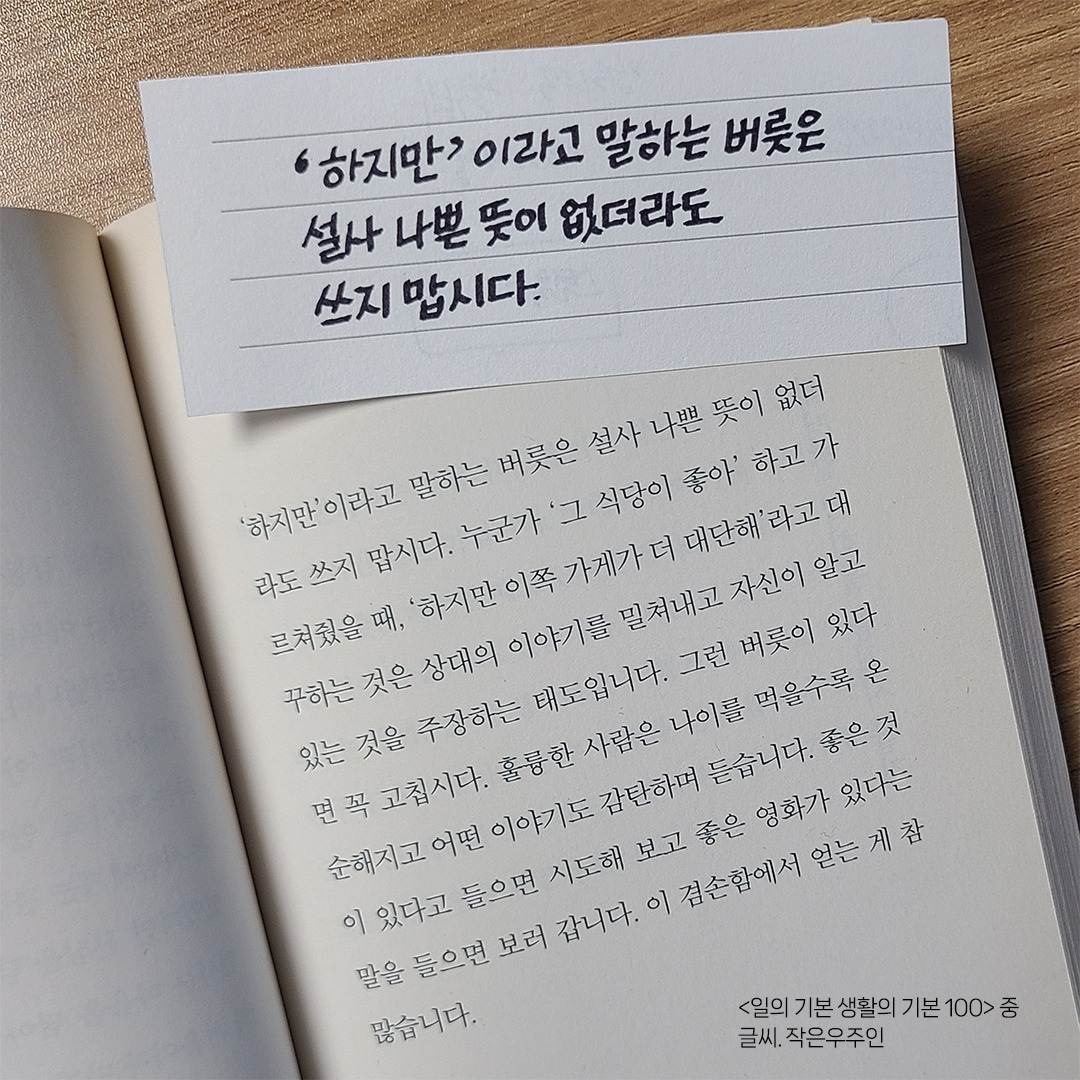 ‘하지만’이라고 말하는 버릇은
설사 나쁜 뜻이 없더라도
쓰지 맙시다.
‘하지만’이라고 말하는 버릇은 설사 나쁜 뜻이 없더
라도 쓰지 맙시다. 누군가 ‘그 식당이 좋아’ 하고 가
르쳐줬을 때, ‘하지만 이쪽 가게가 더 대단해’라고 대
꾸하는 것은 상대의 이야기를 밀쳐내고 자신이 알고
있는 것을 주장하는 태도입니다. 그런 버릇이 있다
면 꼭 고칩시다. 훌륭한 사람은 나이를 먹을수록 온
순해지고 어떤 이야기도 감탄하며 듣습니다. 좋은 것
이 있다고 들으면 시도해 보고 좋은 영화가 있다는
말을 들으면 보러 갑니다. 이 겸손함에서 얻는 게 참
많습니다.
<일의 기본 생활의 기본 100> 중
글씨. 작은우주인